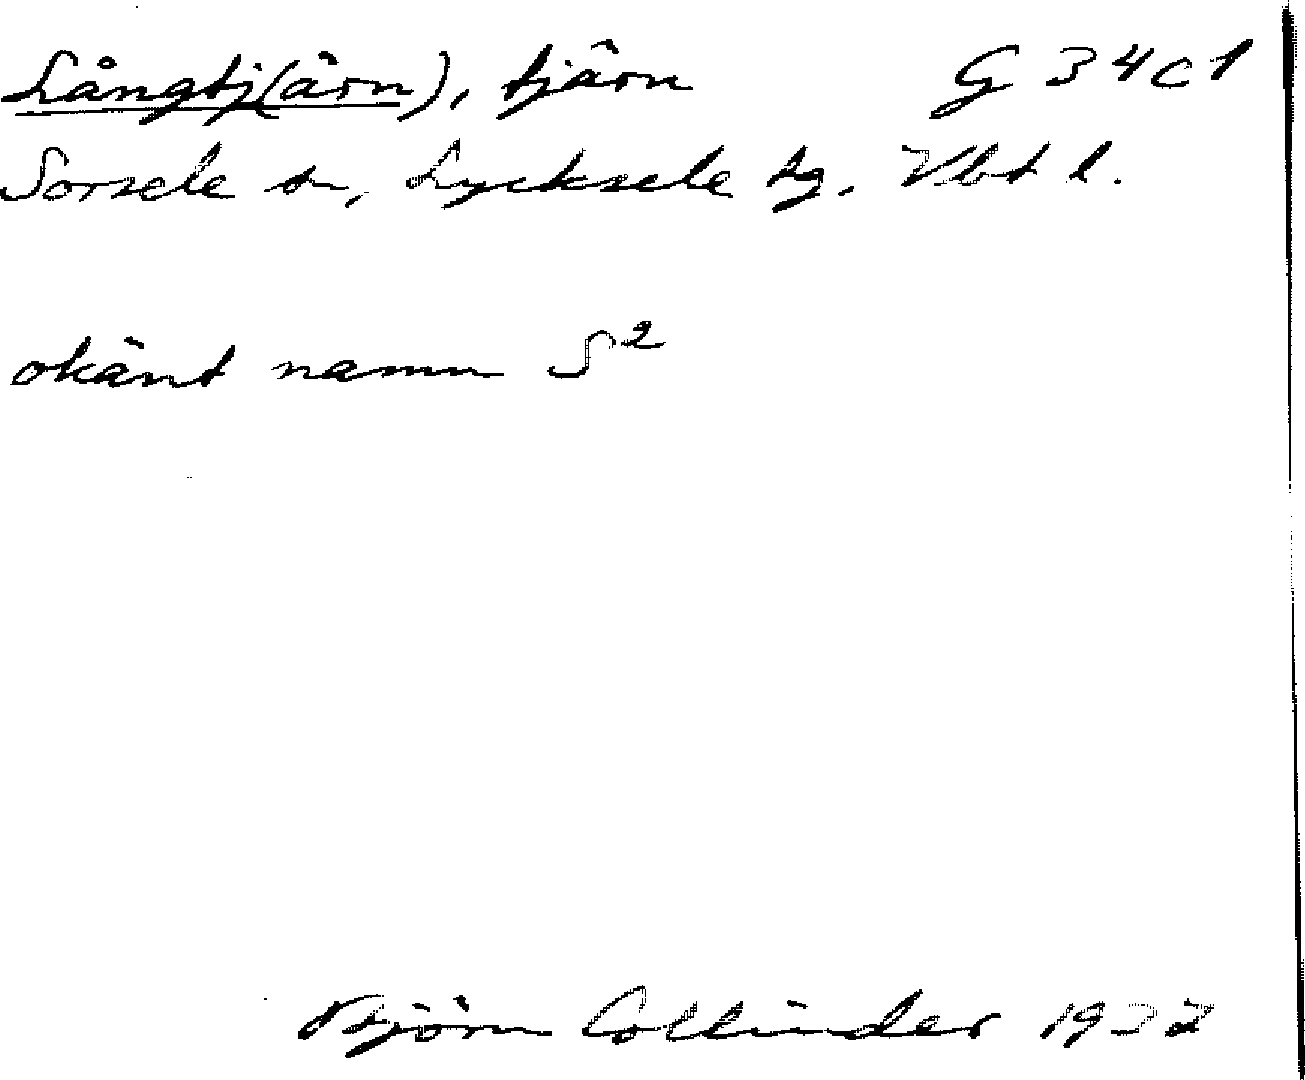 Långtj(ärn), tjärn G 34 c 1
Sorsele sn, Lycksele tg. Vbt l.
okänt namn S²
Björn Collinder 1932